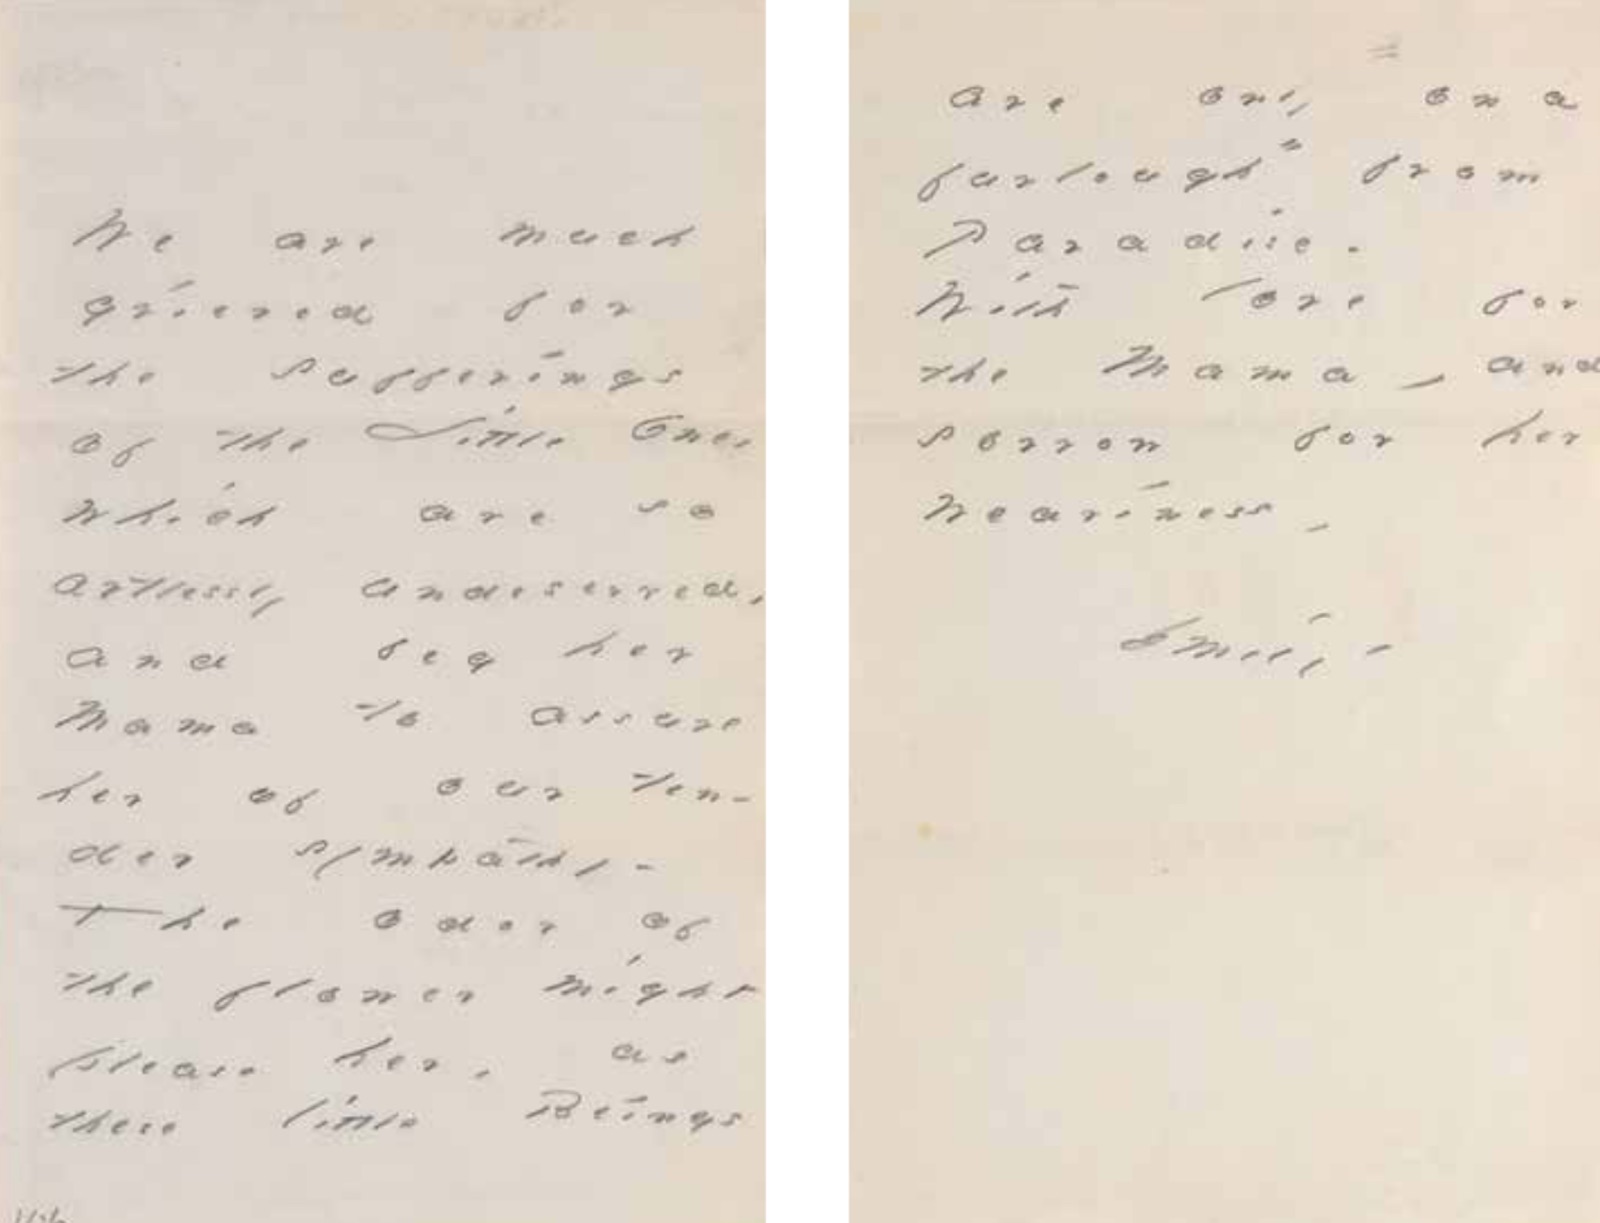 We are much
grieved for
the sufferings
of the Little One,
which are so
artless, undeserved,
and beg her
Mama to assure
her of our ten-
der sympathy -
The odor of
the flower might
please her, as
these little Beings
are only "on a
furlough" from
Paradise.
With love for
the Mama, and
sorrow for her
weariness,
Emily -